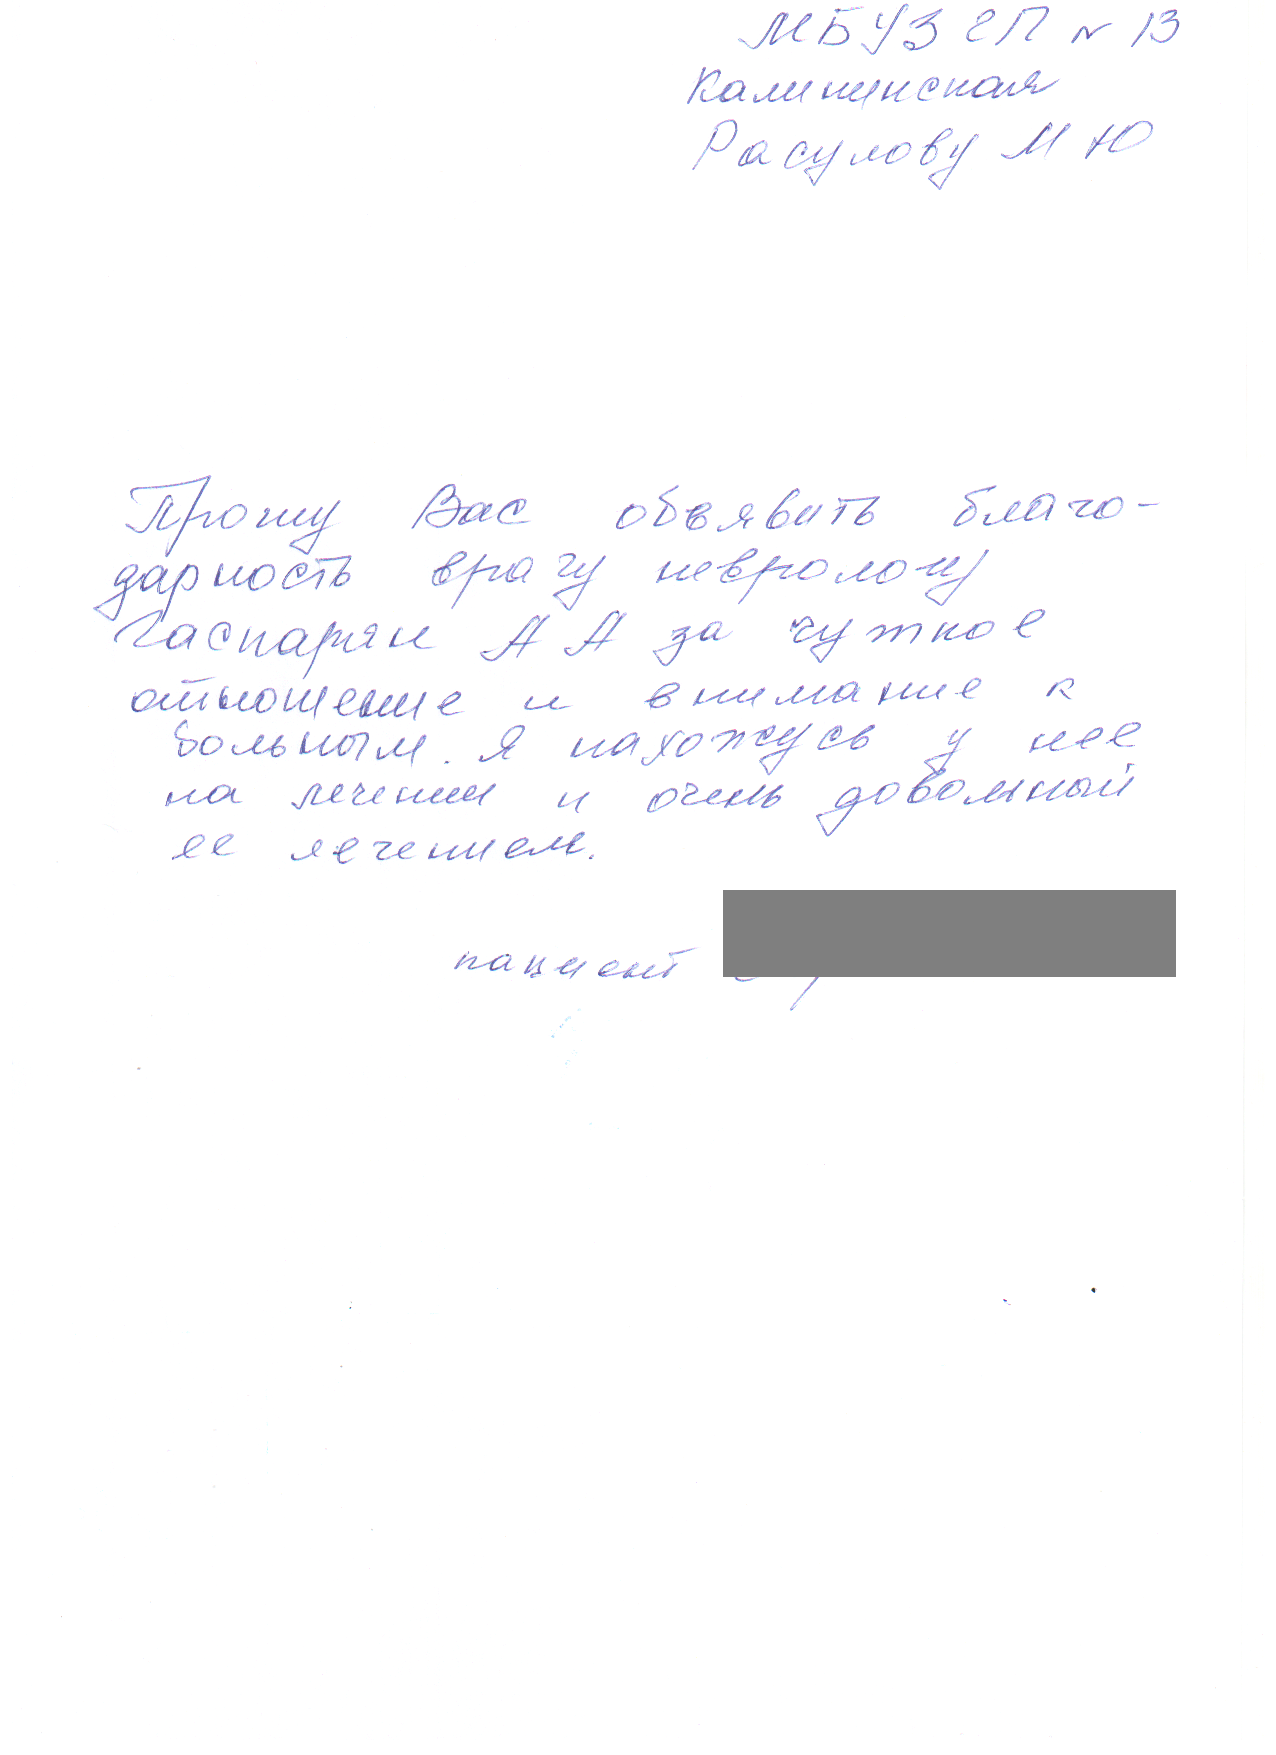 МБУЗ ГП № 13
Калининская
Расулову М Ю
Прошу Вас обьявить благо-
дарность врачу неврологу
Гаспарян А А за чуткое
отношение и внимание к
больным. Я нахожусь у нее
на лечении и очень довольный
ее лечением.
пациент